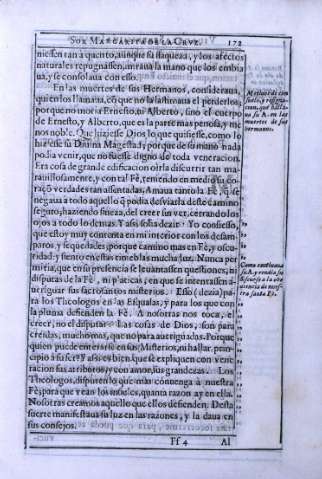 SOR MARGARITA DE LA CRVZ. 172
niessen tan à quento, aunque su flaqueza, y los afectos
naturales repugnassen, miraua la mano que los embia
ua, y se consolaua con esso.
En las muertes de sus Hermanos, consideraua,
quien los llamaua, cõ que no la lastimaua el perderlos,
porque no moria Ernesto, ni Alberto, sino el cuerpo
de Ernesto, y Alberto, que es la parte mas penosa, y me
nos noble. Que hiziesse Dios lo que quisiesse, como lo
hiziesse su Diuina Magestad, porque de su mano nada
podia venir, que no fuesse digno de toda veneracion.
Era cosa de grande edificacion oirla discurrir tan ma
rauillosamente, y con tal Fè, teniendo en medio su co
raçõ verdades tan assentadas. Amaua tanto la Fè, q̃ se
negaua à todo aquello q̃ podia desuiarla deste camino
seguro, haziendo fineza, del creer sin ver, cerrando los
ojos à todo lo demas. Y assi solia dezir: Yo confiesso,
que estoy muy contenta en mi interior con los desam
paros y sequedades porque camino mas en Fè, y oscu-
ridad: y siento en estas tinieblas mucha luz. Nunca per
mitia, que en su presencia se leuantassen questiones, ni
disputas de la Fè, ni platicas, en que se intentassen a-
ueriguar sus soberanos misterios. Esso (dezia) pa-
ra los Theologos en las Escuelas, y para los que con
la pluma defienden la Fè. A nosotras nos toca, el
creer, no el disputar. Las cosas de Dios, son para
creidas, mucho mas, que no para auerigüadas. Porque
quien puede entrar en sus Misterios, ni hallar, prin-
cipio à su ser? Y assi es bien, que se expliquen con vene-
racion sus atributos, y con amor, sus grandezas. Los
Theologos, disputen lo que mas conuenga à nuestra
Fè, para que vean los infieles, quanta razon ay en ella.
Nosotras creamos aquello que ellos defienden. Desta
suerte manifestaua su luz en las razones, y la daua en
sus consejos.
Ff 4 Al
Motiuos de con
suelo, y resigna
cion, que halla-
ua su A. en las
muertes de sus
hermanos.
Como cautiuaua
su A. y rendia su